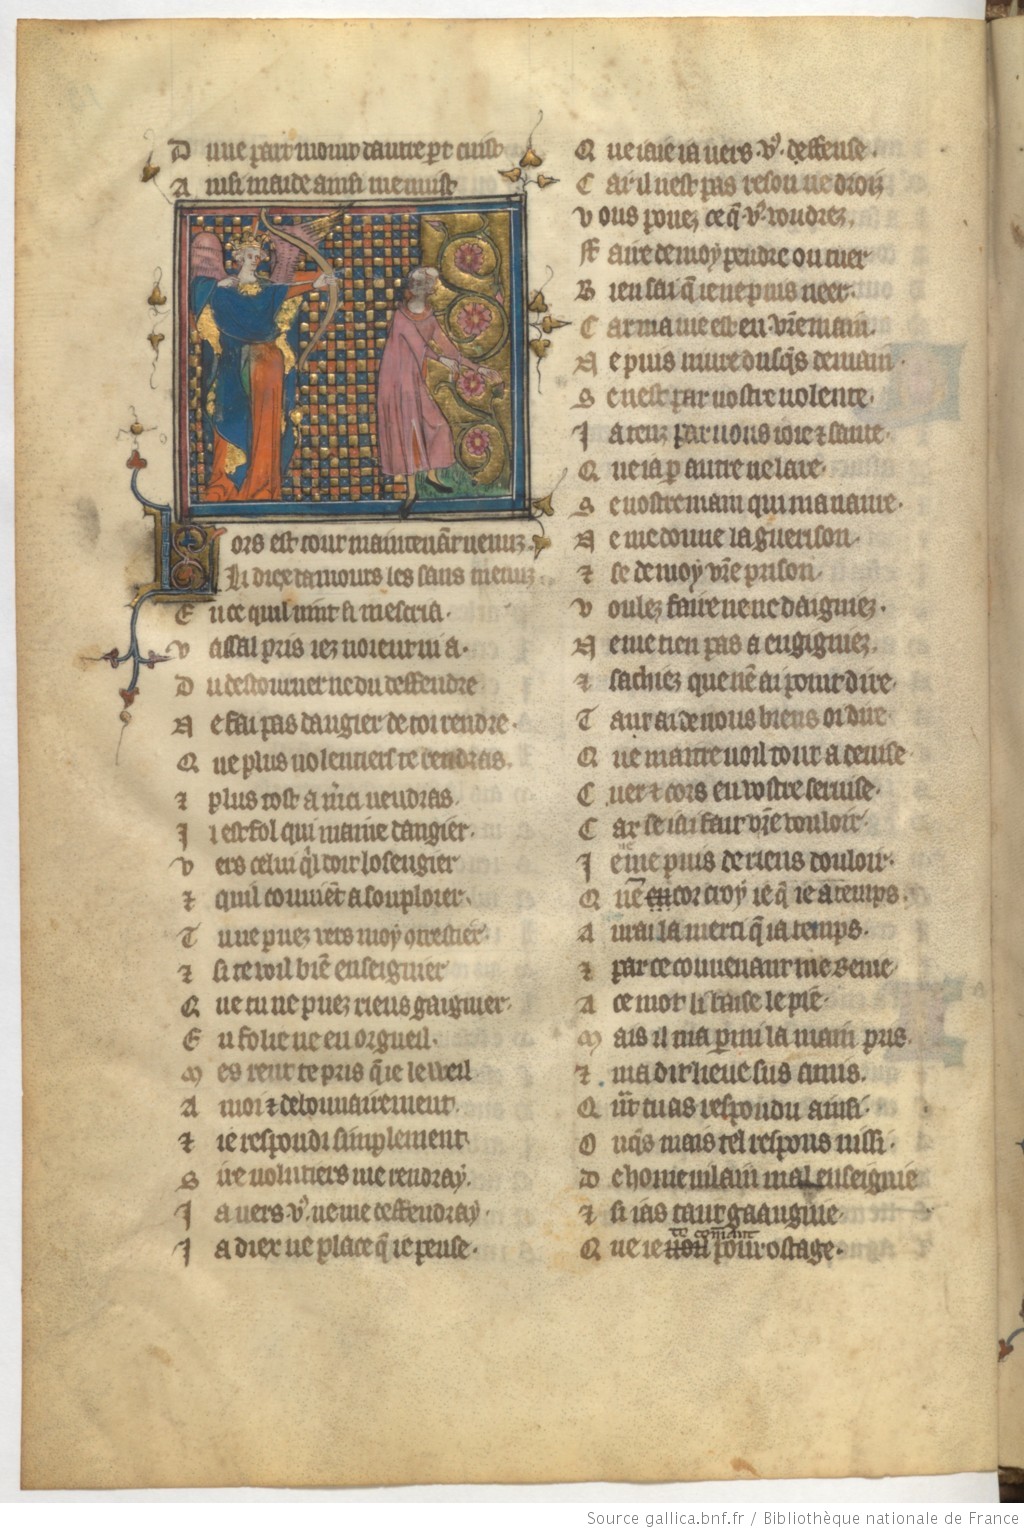 D une part moint dautre part cuist
A insi maide ainsi me nuist
L ors est tout maintenāt venuz
Li diex damours les sans menuz
E n ce quil vint si mescria.
V assal pris iez noient ni a.
D u destourner ne du deffendre
N e fai pas dangier de toi rendre.
Q ue plus volentiers te rendras.
⁊ plus tost a m̄ci vendras.
I l est fol qui maine dangier.
V ers celui q̄l doit losengier
⁊ quil couuiēt a souploier.
T u ne puez vers moy
⁊ si te voil biē enseignier
Q ue tu ne puez riens gaignier.
E n folie ne en orgueil.
M es rent te pris q̄ ie le weil
A moi ⁊ debonnairement.
⁊ ie respondi simplement.
S ire volūtiers me rendray.
J a vers .v9. ne me deffendray.
J a diex ne place q̄ ie pense.
Q ue iaie ia vers .v9. deffense.
C ar il nest pas reson ne droiz
V ous pouez ce q̄ .v9. voudrez.
F aire de moy pendre ou tuer
B ien sai q̄ ie ne puis neer.
C ar ma vie est en vr̄e main.
N e puis viure dusq̄s demain.
S e nest par vostre volente.
J atenz par vous ioie ⁊ sante.
Q ue ia p autre ne lare.
S e vostre main qui ma naure.
N e me donne la guerison.
⁊ se de moy vr̄e prison.
V oulez faire ne ne daigniez.
N e me tien pas a engigniez.
⁊ sachiez que nē ai point dire.
T ant ai de vous biens oi dire.
Q ue mettre voil tout a deuise
C uer ⁊ cors en vostre seruise.
C ar se iai fait vr̄e vouloir.
J e ne me puis de riens douloir.
Q uē cor croy ie q̄ ie a temps.
A urai la merci q̄ iatemps.
⁊ par ce couuenant me rente
A ce mot li baise le pie.
M ais il ma parmi la main pris.
⁊ ma dit lieue sus amis.
Q nt tu as respondu ainsi.
O nq̄s mais tel respons nissi.
D e home vilain mal enseignie
⁊ si ias tant gaaignie.
Q ue ie pour ostage.
Source gallica.bnf.fr / Bibliothèque nationale de France